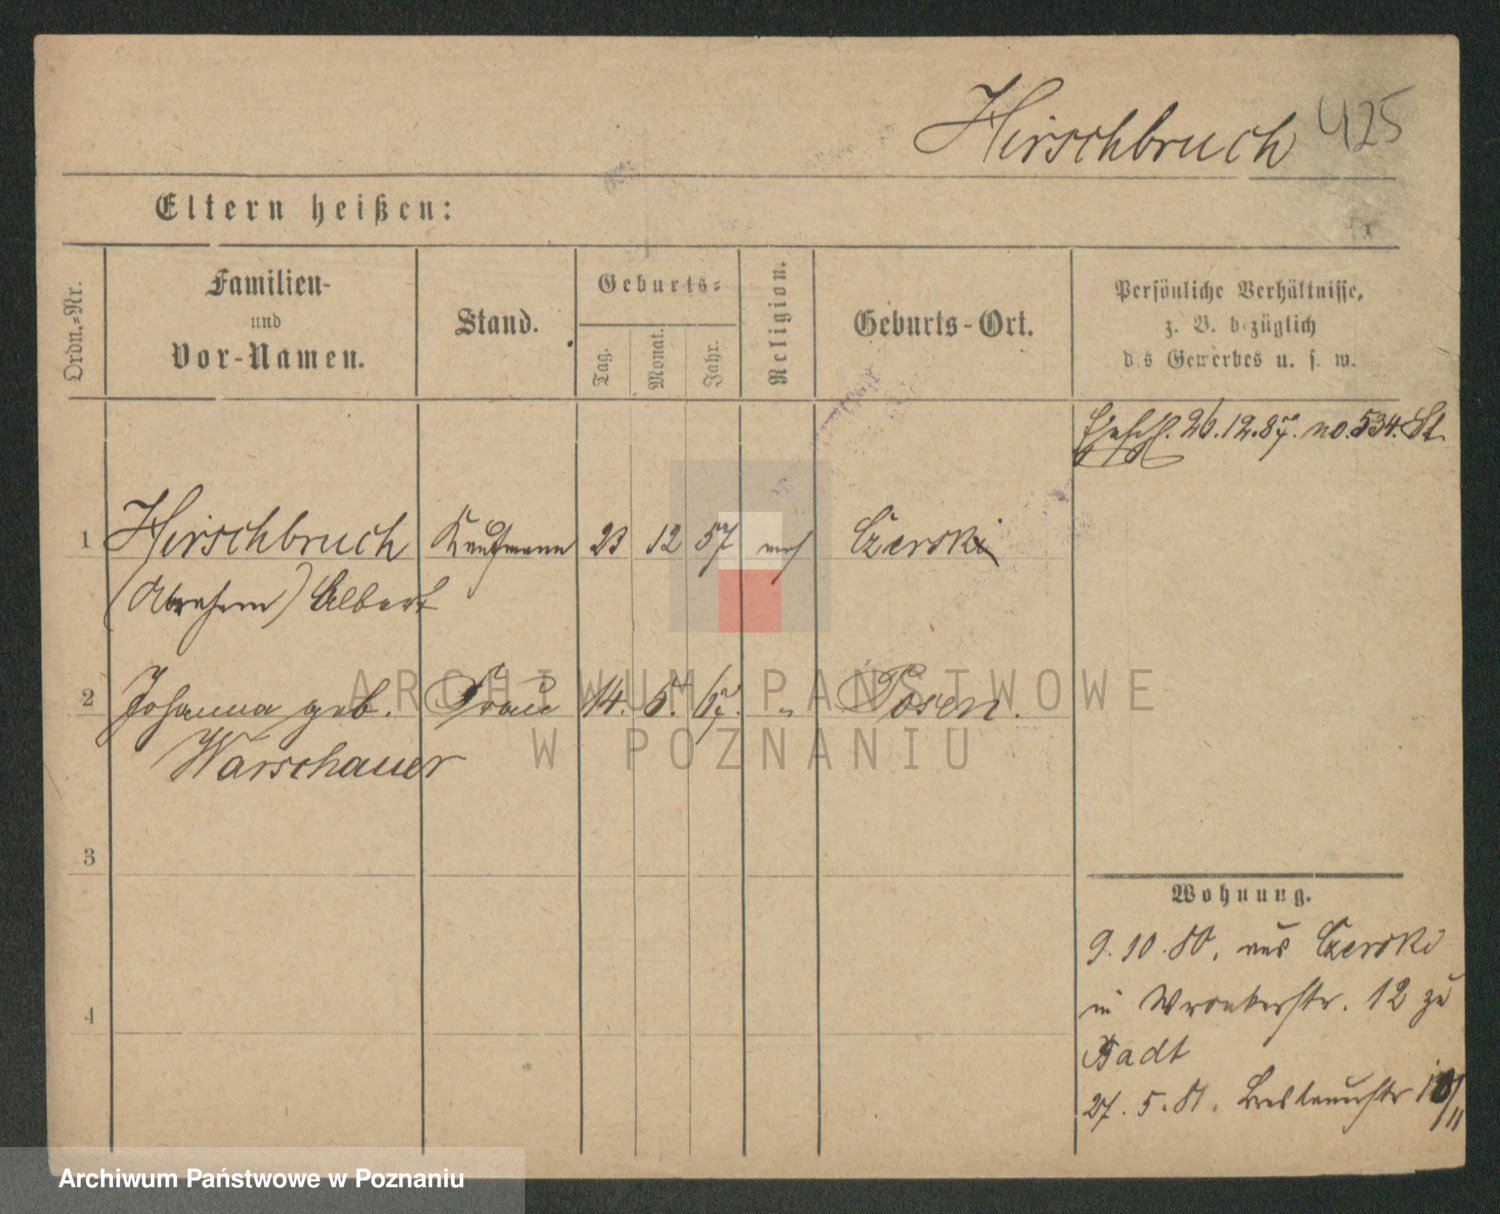 Hirschbruch 425
Eltern heißen:
Ordn.-Nr.
Familien-
und
Vor-Namen.
Stand.
Geburts-
Tag.
Monat.
Jahr.
Religion.
Geburts-Ort.
Persönliche Verhältnisse,
z. B. bezüglich
des Gewerbes u. s. w.
26.12.87. no. 534. St.
1 Hirschbruch Kaufmann 23 12 57 mos Czersk
(Abraham) Albert
2 Johanna geb. Frau 14. 5. 67. " Posen.
Warschauer
3
4
Wohnung.
9.10.80. aus Czersk
in Wronkerstr. 12 zu
Badt
27.5.81. Breslauerstr 18/II
ARCHIWUM PAŃSTWOWE
W POZNANIU
Archiwum Państwowe w Poznaniu